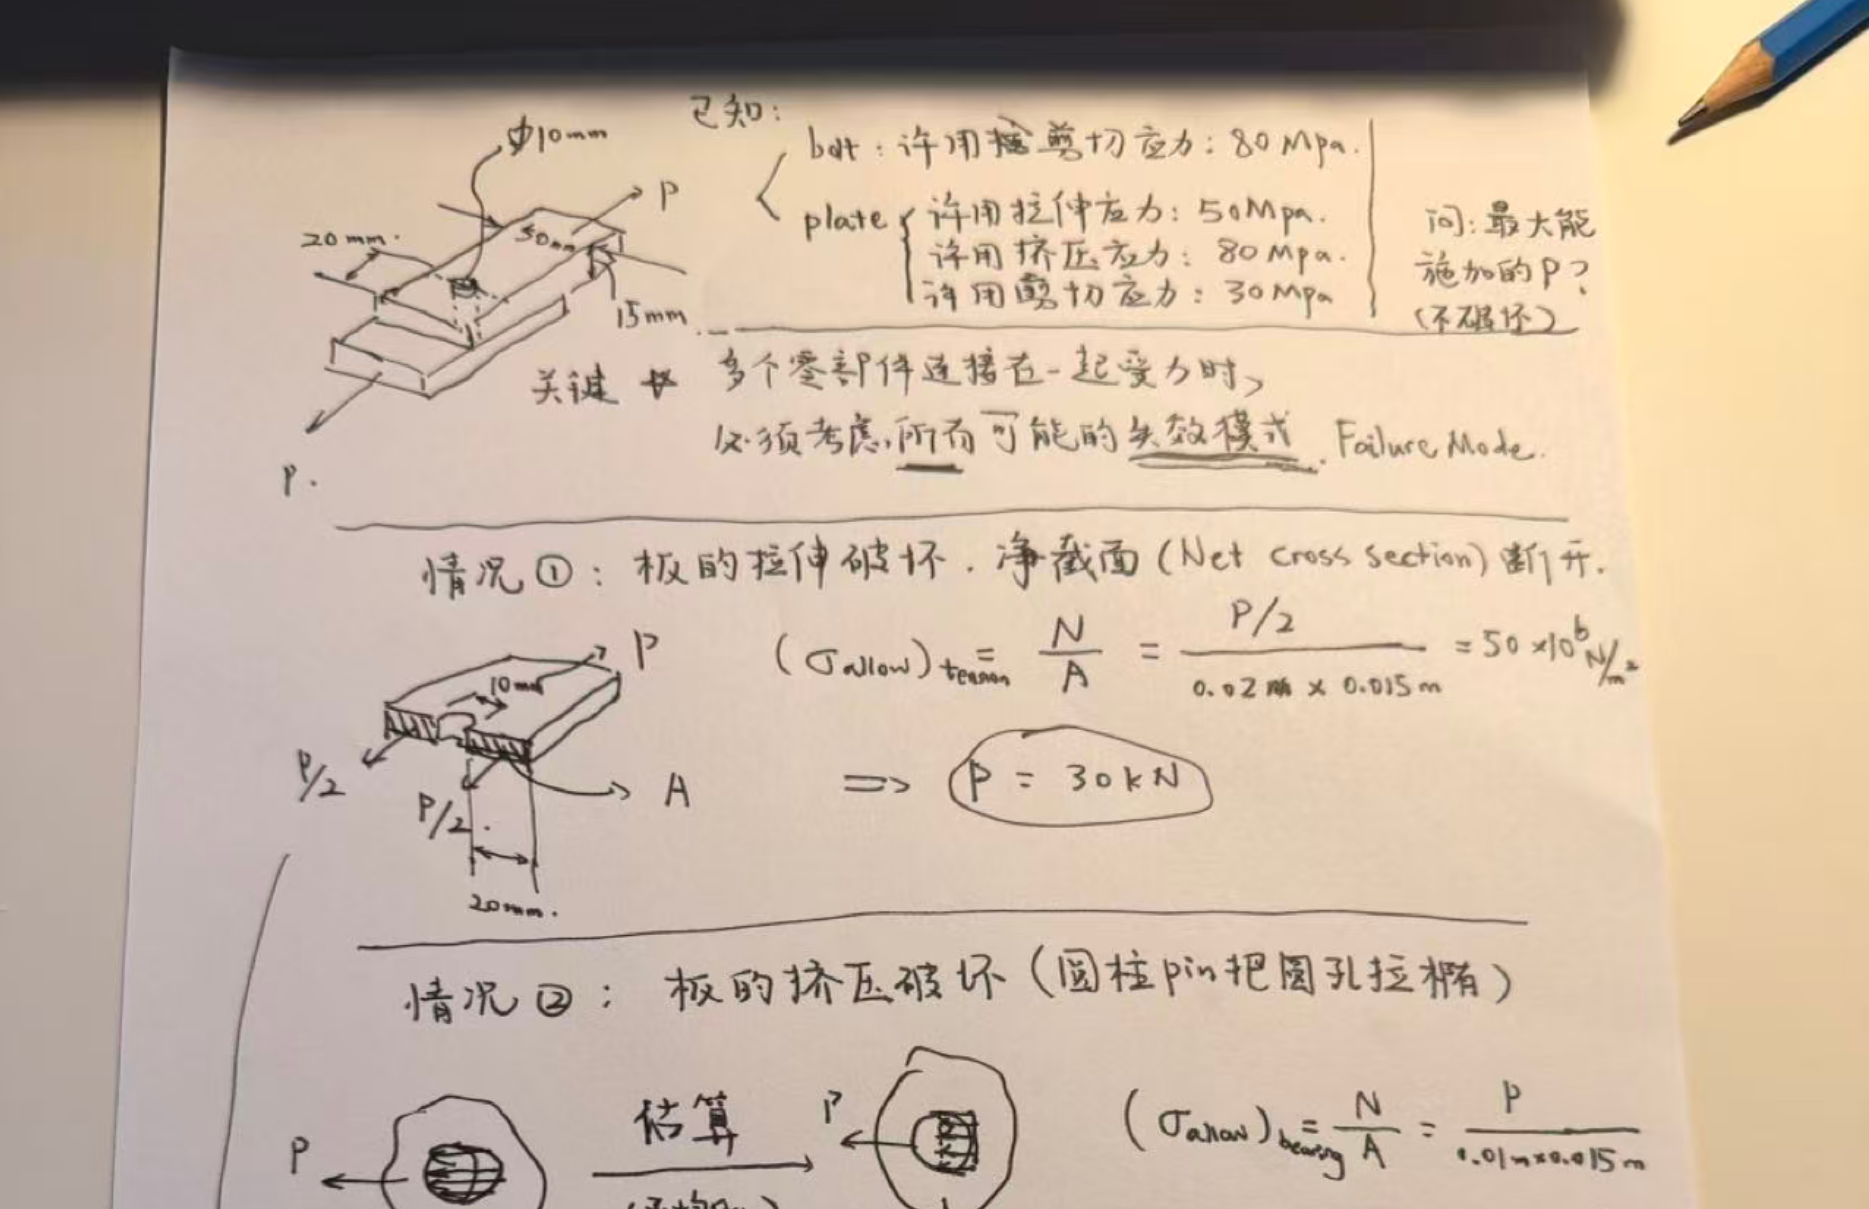 已知:
ϕ10mm
bolt : 许用剪切应力: 80 Mpa.
P
20 mm.
50mm
plate 许用拉伸应力: 50Mpa.
许用挤压应力: 80 Mpa.
许用剪切应力: 30 Mpa
问: 最大能
施加的 P ?
(不破坏)
15mm
P.
关键 多个零部件连接在一起受力时,
必须考虑,所有可能的失效模式. Failure Mode.
情况 ① : 板的拉伸破坏. 净截面 (Net cross section) 断开.
P
10mm
(σallow)tension = N/A = P/2 / 0.02 m × 0.015 m = 50 ×10⁶ N/m²
P/2
P/2.
A
=> P = 30 kN
20mm.
情况 ② : 板的挤压破坏 (圆柱pin把圆孔拉椭)
P
估算
P
(σallow)bearing = N/A = P / 0.01m×0.015m